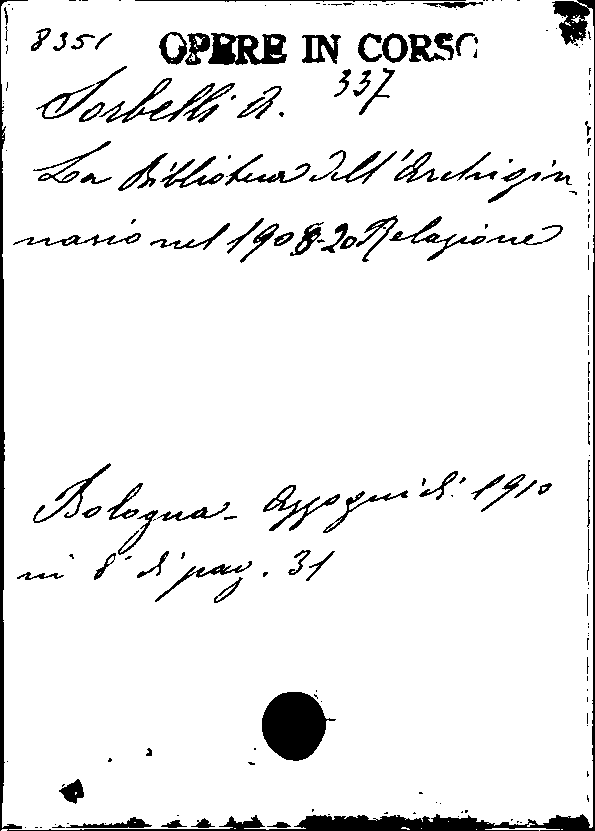 8351 OPERE IN CORSO
337
Sorbelli A.
La Biblioteca dell'Archigin_
nasio nel 1908-20 Relazione
Bologna - Azzoguidi 1910
in 8° di pag. 31